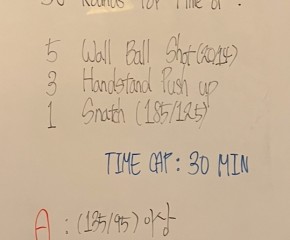 30 Rounds for Time of :
5 Wall Ball Shot (20/14)
3 Handstand Push up
1 Snatch (185/125)
TIME CAP : 30 MIN
A : (135/95) 이상